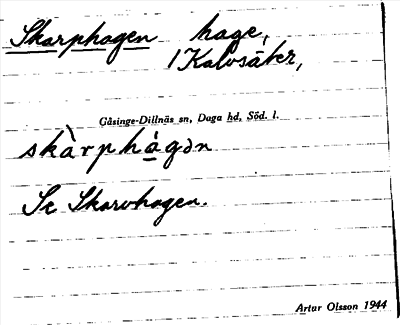 Skarphagen hage,
1 Kalvsäker,
Gåsinge-Dillnäs sn, Daga hd, Söd. l.
skàrphágən
Se Skarvhagen.
Artur Olsson 1944